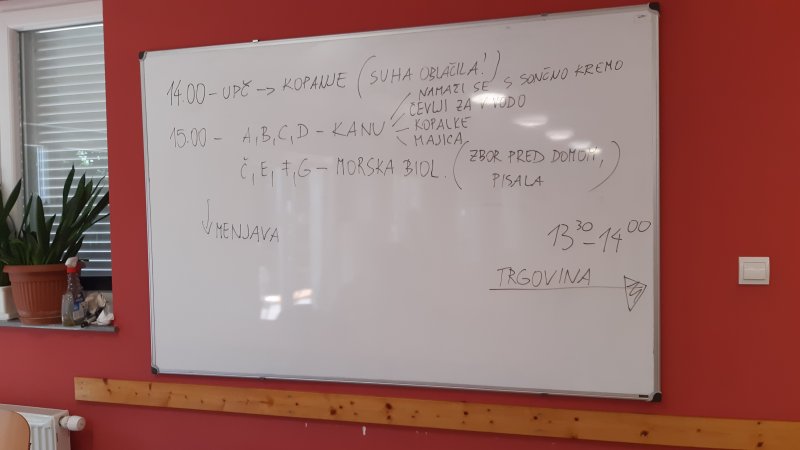 14.00 – UPČ → KOPANJE (SUHA OBLAČILA!)
NAMAZI SE S SONČNO KREMO
ČEVLJI ZA V VODO
15.00 – A, B, C, D – KANU
KOPALKE
MAJICA
Č, E, F, G – MORSKA BIOL. (ZBOR PRED DOMOM,
PISALA)
↓ MENJAVA
13³⁰ – 14⁰⁰
TRGOVINA